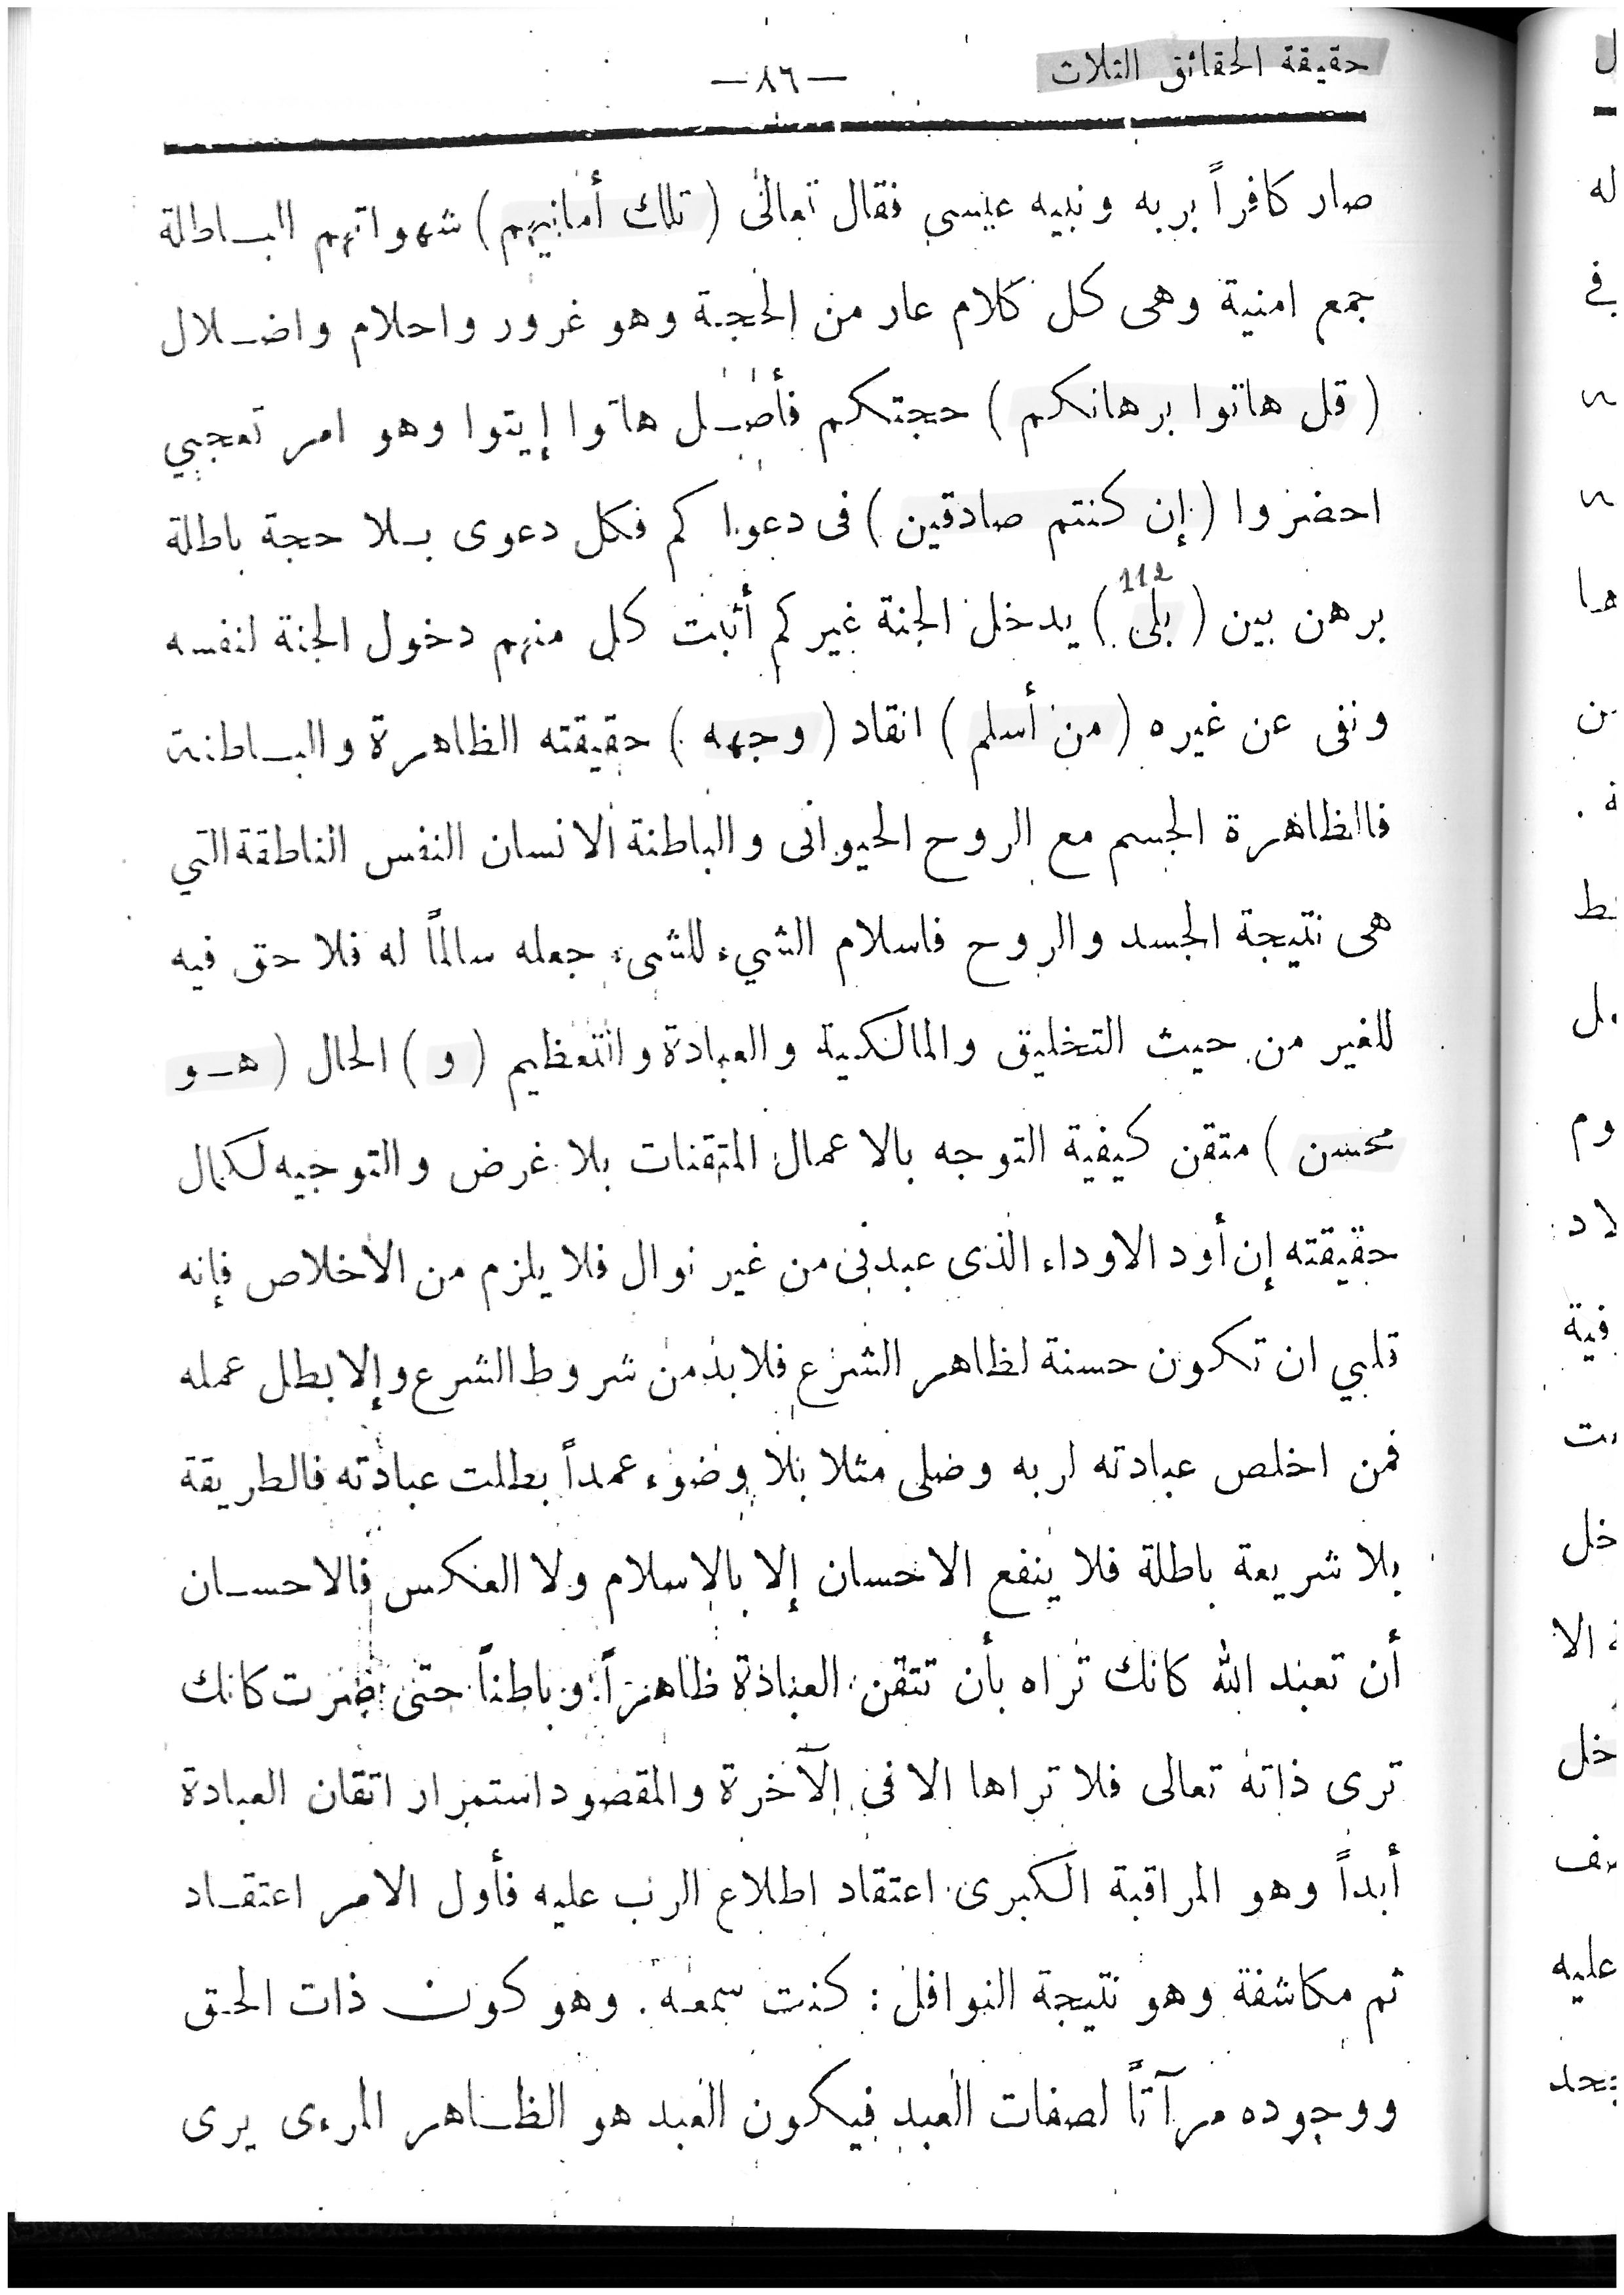 حقيقة الحقائق الثلاث
—٨٦—
صار كافراً بربه ونبيه عيسى فقال تعالى (تلك أمانيهم) شهواتهم الباطلة
جمع امنية وهى كل كلام عار من الحجة وهو غرور واحلام واضلال
(قل هاتوا برهانكم) حجتكم فأصل هاتوا إيتوا وهو امر تعجبي
احضروا (إن كنتم صادقين) فى دعواكم فكل دعوى بلا حجة باطلة
112
برهن بين (بلى) يدخل الجنة غيركم أثبت كل منهم دخول الجنة لنفسه
ونفى عن غيره (من أسلم) انقاد (وجهه) حقيقته الظاهرة والباطنة
فالظاهرة الجسم مع الروح الحيوانى والباطنة الانسان النفس الناطقة التي
هى نتيجة الجسد والروح فاسلام الشيء للشىء جعله سالماً له فلا حق فيه
للغير من حيث التخليق والمالكية والعبادة والتعظيم (و) الحال (هو
محسن) متقن كيفية التوجه بالاعمال المتقنات بلا غرض والتوجيه لكمال
حقيقته إن أود الاوداء الذى عبدنى من غير نوال فلا يلزم من الاخلاص فإنه
قلبي ان تكون حسنة لظاهر الشرع فلابد من شروط الشرع وإلا بطل عمله
فمن اخلص عبادته لربه وصلى مثلا بلا وضوء عمداً بطلت عبادته فالطريقة
بلا شريعة باطلة فلا ينفع الاحسان إلا بالاسلام ولا العكس فالاحسان
أن تعبد الله كانك تراه بأن تتقن العبادة ظاهراً وباطناً حتى صرت كانك
ترى ذاته تعالى فلا تراها الا فى الآخرة والمقصود استمرار اتقان العبادة
أبداً وهو المراقبة الكبرى اعتقاد اطلاع الرب عليه فأول الامر اعتقاد
ثم مكاشفة وهو نتيجة النوافل : كنت سمعه . وهو كون ذات الحق
ووجوده مرآتاً لصفات العبد فيكون العبد هو الظاهر المرءى يرى